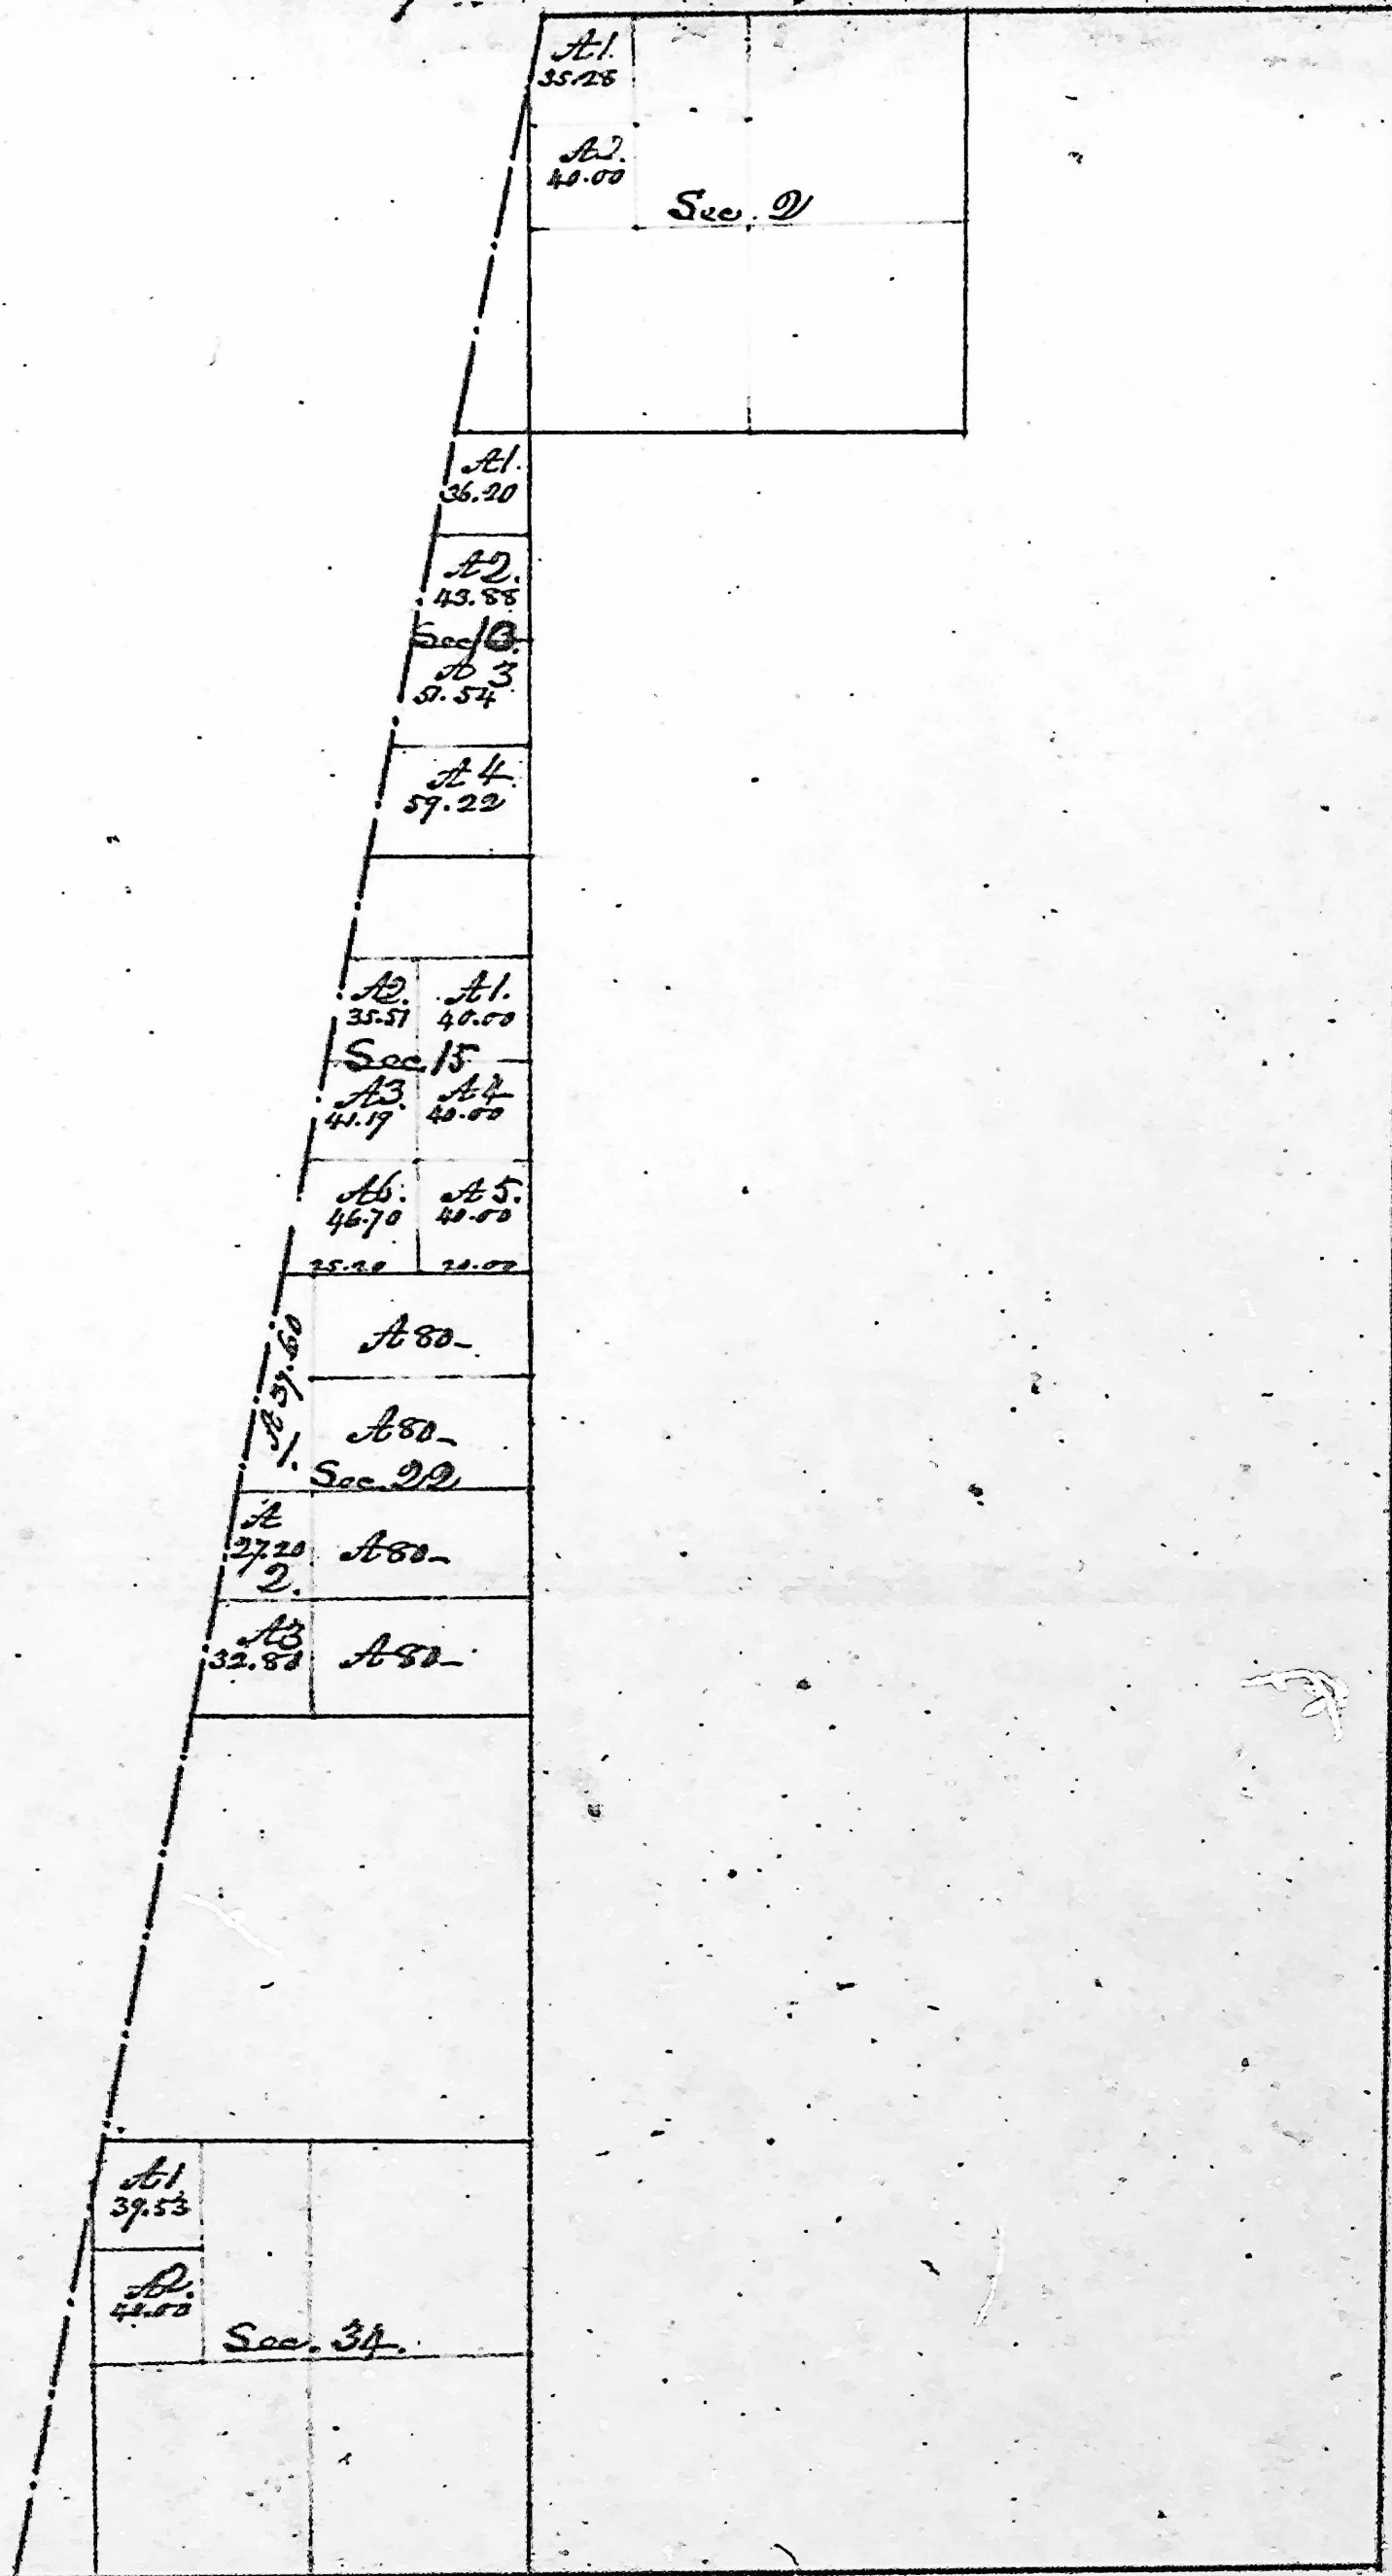 A1.
35.28
A2.
40.00
Sec. 2
A1.
36.20
A2.
43.88
Sec 10.
A 3
51.54
A 4.
59.22
A2. A1.
35.51 40.00
Sec. 15
A3. A4
41.19 40.00
A6. A 5.
46.70 40.00
25.20 20.00
A 80-
A 39.60
1.
A 80-
Sec. 22
A
27.20 A 80-
2.
A3
32.80 A 80-
A1
39.53
A2.
40.00
Sec. 34.